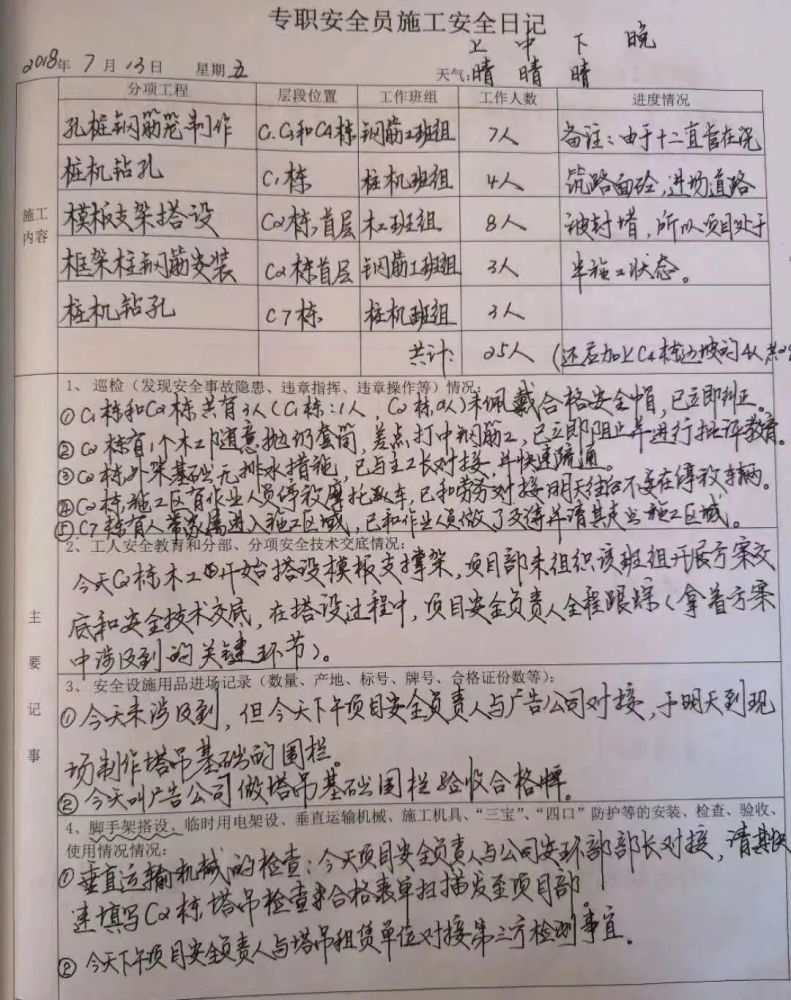 专职安全员施工安全日记
上 中 下 晚
2018年 7月13日 星期五 天气:晴 晴 晴
分项工程 层段位置 工作班组 工作人数 进度情况
孔桩钢筋笼制作 C1.C3和C4栋 钢筋工班组 7人 备注:由于十二直管在浇
桩机钻孔 C1栋 桩机班组 4人 筑路面砼,进场道路
施工内容
模板支架搭设 C2栋,首层 木工班组 8人 被封堵,所以项目处于
框架柱钢筋安装 C2栋首层 钢筋工班组 3人 半施工状态。
桩机钻孔 C7栋 桩机班组 3人
共计: 25人 (还后加上C4栋边坡的4人,共
主要记事
1、巡检(发现安全事故隐患、违章指挥、违章操作等)情况:
①C1栋和C2栋共有3人(C1栋:1人,C2栋2人)未佩戴合格安全帽,已立即纠正。
②C2栋有1个木工随意抛扔套筒,差点打中钢筋工,已立即阻止并进行批评教育。
③C2栋,外架基础无排水措施,已与主工长对接,并快速疏通。
④C2栋,施工区有作业人员停放摩托车,已和劳务对接明天往后不要在停放车辆。
⑤C7栋有人带家属进入施工区域,已和作业人员做了交待并请其走出施工区域。
2、工人安全教育和分部、分项安全技术交底情况:
今天C2栋木工开始搭设模板支撑架,项目部未组织该班组开展方案交
底和安全技术交底,在搭设过程中,项目安全负责人全程跟踪(拿着方案
中涉及到的关键环节)。
3、安全设施用品进场记录(数量、产地、标号、牌号、合格证份数等):
①今天未涉及到,但今天下午项目安全负责人与广告公司对接,于明天到现
场制作塔吊基础的围栏。
②今天叫广告公司做塔吊基础围栏验收合格牌。
4、脚手架搭设、临时用电架设、垂直运输机械、施工机具、“三宝”、“四口”防护等的安装、检查、验收、
使用情况情况:
①垂直运输机械的检查:今天项目安全负责人与公司安环部部长对接,请其快
速填写C2栋塔吊检查合格表单扫描发至项目部。
②今天下午项目安全负责人与塔吊租赁单位对接第三方检测事宜。